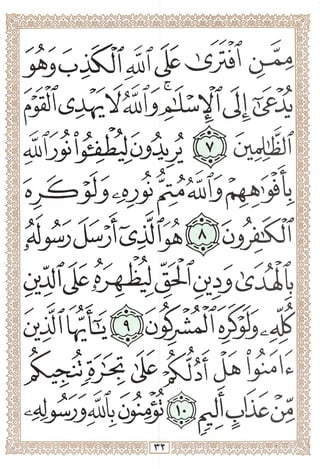 مِمَّنِ ٱفْتَرَىٰ عَلَى ٱللَّهِ ٱلْكَذِبَ وَهُوَ
يُدْعَىٰٓ إِلَى ٱلْإِسْلَٰمِ ۚ وَٱللَّهُ لَا يَهْدِى ٱلْقَوْمَ
ٱلظَّٰلِمِينَ ٧ يُرِيدُونَ لِيُطْفِـُٔوا۟ نُورَ ٱللَّهِ
بِأَفْوَٰهِهِمْ وَٱللَّهُ مُتِمُّ نُورِهِۦ وَلَوْ كَرِهَ
ٱلْكَٰفِرُونَ ٨ هُوَ ٱلَّذِىٓ أَرْسَلَ رَسُولَهُۥ
بِٱلْهُدَىٰ وَدِينِ ٱلْحَقِّ لِيُظْهِرَهُۥ عَلَى ٱلدِّينِ
كُلِّهِۦ وَلَوْ كَرِهَ ٱلْمُشْرِكُونَ ٩ يَٰٓأَيُّهَا ٱلَّذِينَ
ءَامَنُوا۟ هَلْ أَدُلُّكُمْ عَلَىٰ تِجَٰرَةٍ تُنجِيكُم
مِّنْ عَذَابٍ أَلِيمٍ ١٠ تُؤْمِنُونَ بِٱللَّهِ وَرَسُولِهِۦ
٣٢